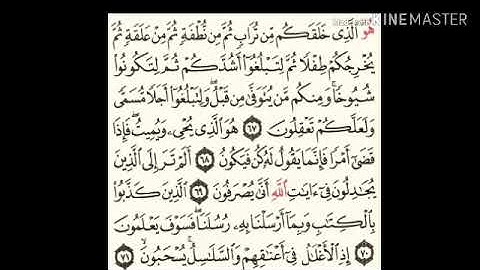 Made With
KINEMASTER
هُوَ الَّذِى خَلَقَكُم مِّن تُرَابٍ ثُمَّ مِن نُّطْفَةٍ ثُمَّ مِنْ عَلَقَةٍ ثُمَّ
يُخْرِجُكُمْ طِفْلًا ثُمَّ لِتَبْلُغُوٓا۟ أَشُدَّكُمْ ثُمَّ لِتَكُونُوا۟
شُيُوخًا ۚ وَمِنكُم مَّن يُتَوَفَّىٰ مِن قَبْلُ ۖ وَلِتَبْلُغُوٓا۟ أَجَلًا مُّسَمًّى
وَلَعَلَّكُمْ تَعْقِلُونَ ٦٧ هُوَ الَّذِى يُحْىِۦ وَيُمِيتُ ۖ فَإِذَا
قَضَىٰٓ أَمْرًا فَإِنَّمَا يَقُولُ لَهُۥ كُن فَيَكُونُ ٦٨ أَلَمْ تَرَ إِلَى الَّذِينَ
يُجَٰدِلُونَ فِىٓ ءَايَٰتِ اللَّهِ أَنَّىٰ يُصْرَفُونَ ٦٩ الَّذِينَ كَذَّبُوا۟
بِالْكِتَٰبِ وَبِمَآ أَرْسَلْنَا بِهِۦ رُسُلَنَا ۖ فَسَوْفَ يَعْلَمُونَ
٧٠ إِذِ الْأَغْلَٰلُ فِىٓ أَعْنَٰقِهِمْ وَالسَّلَٰسِلُ يُسْحَبُونَ ٧١